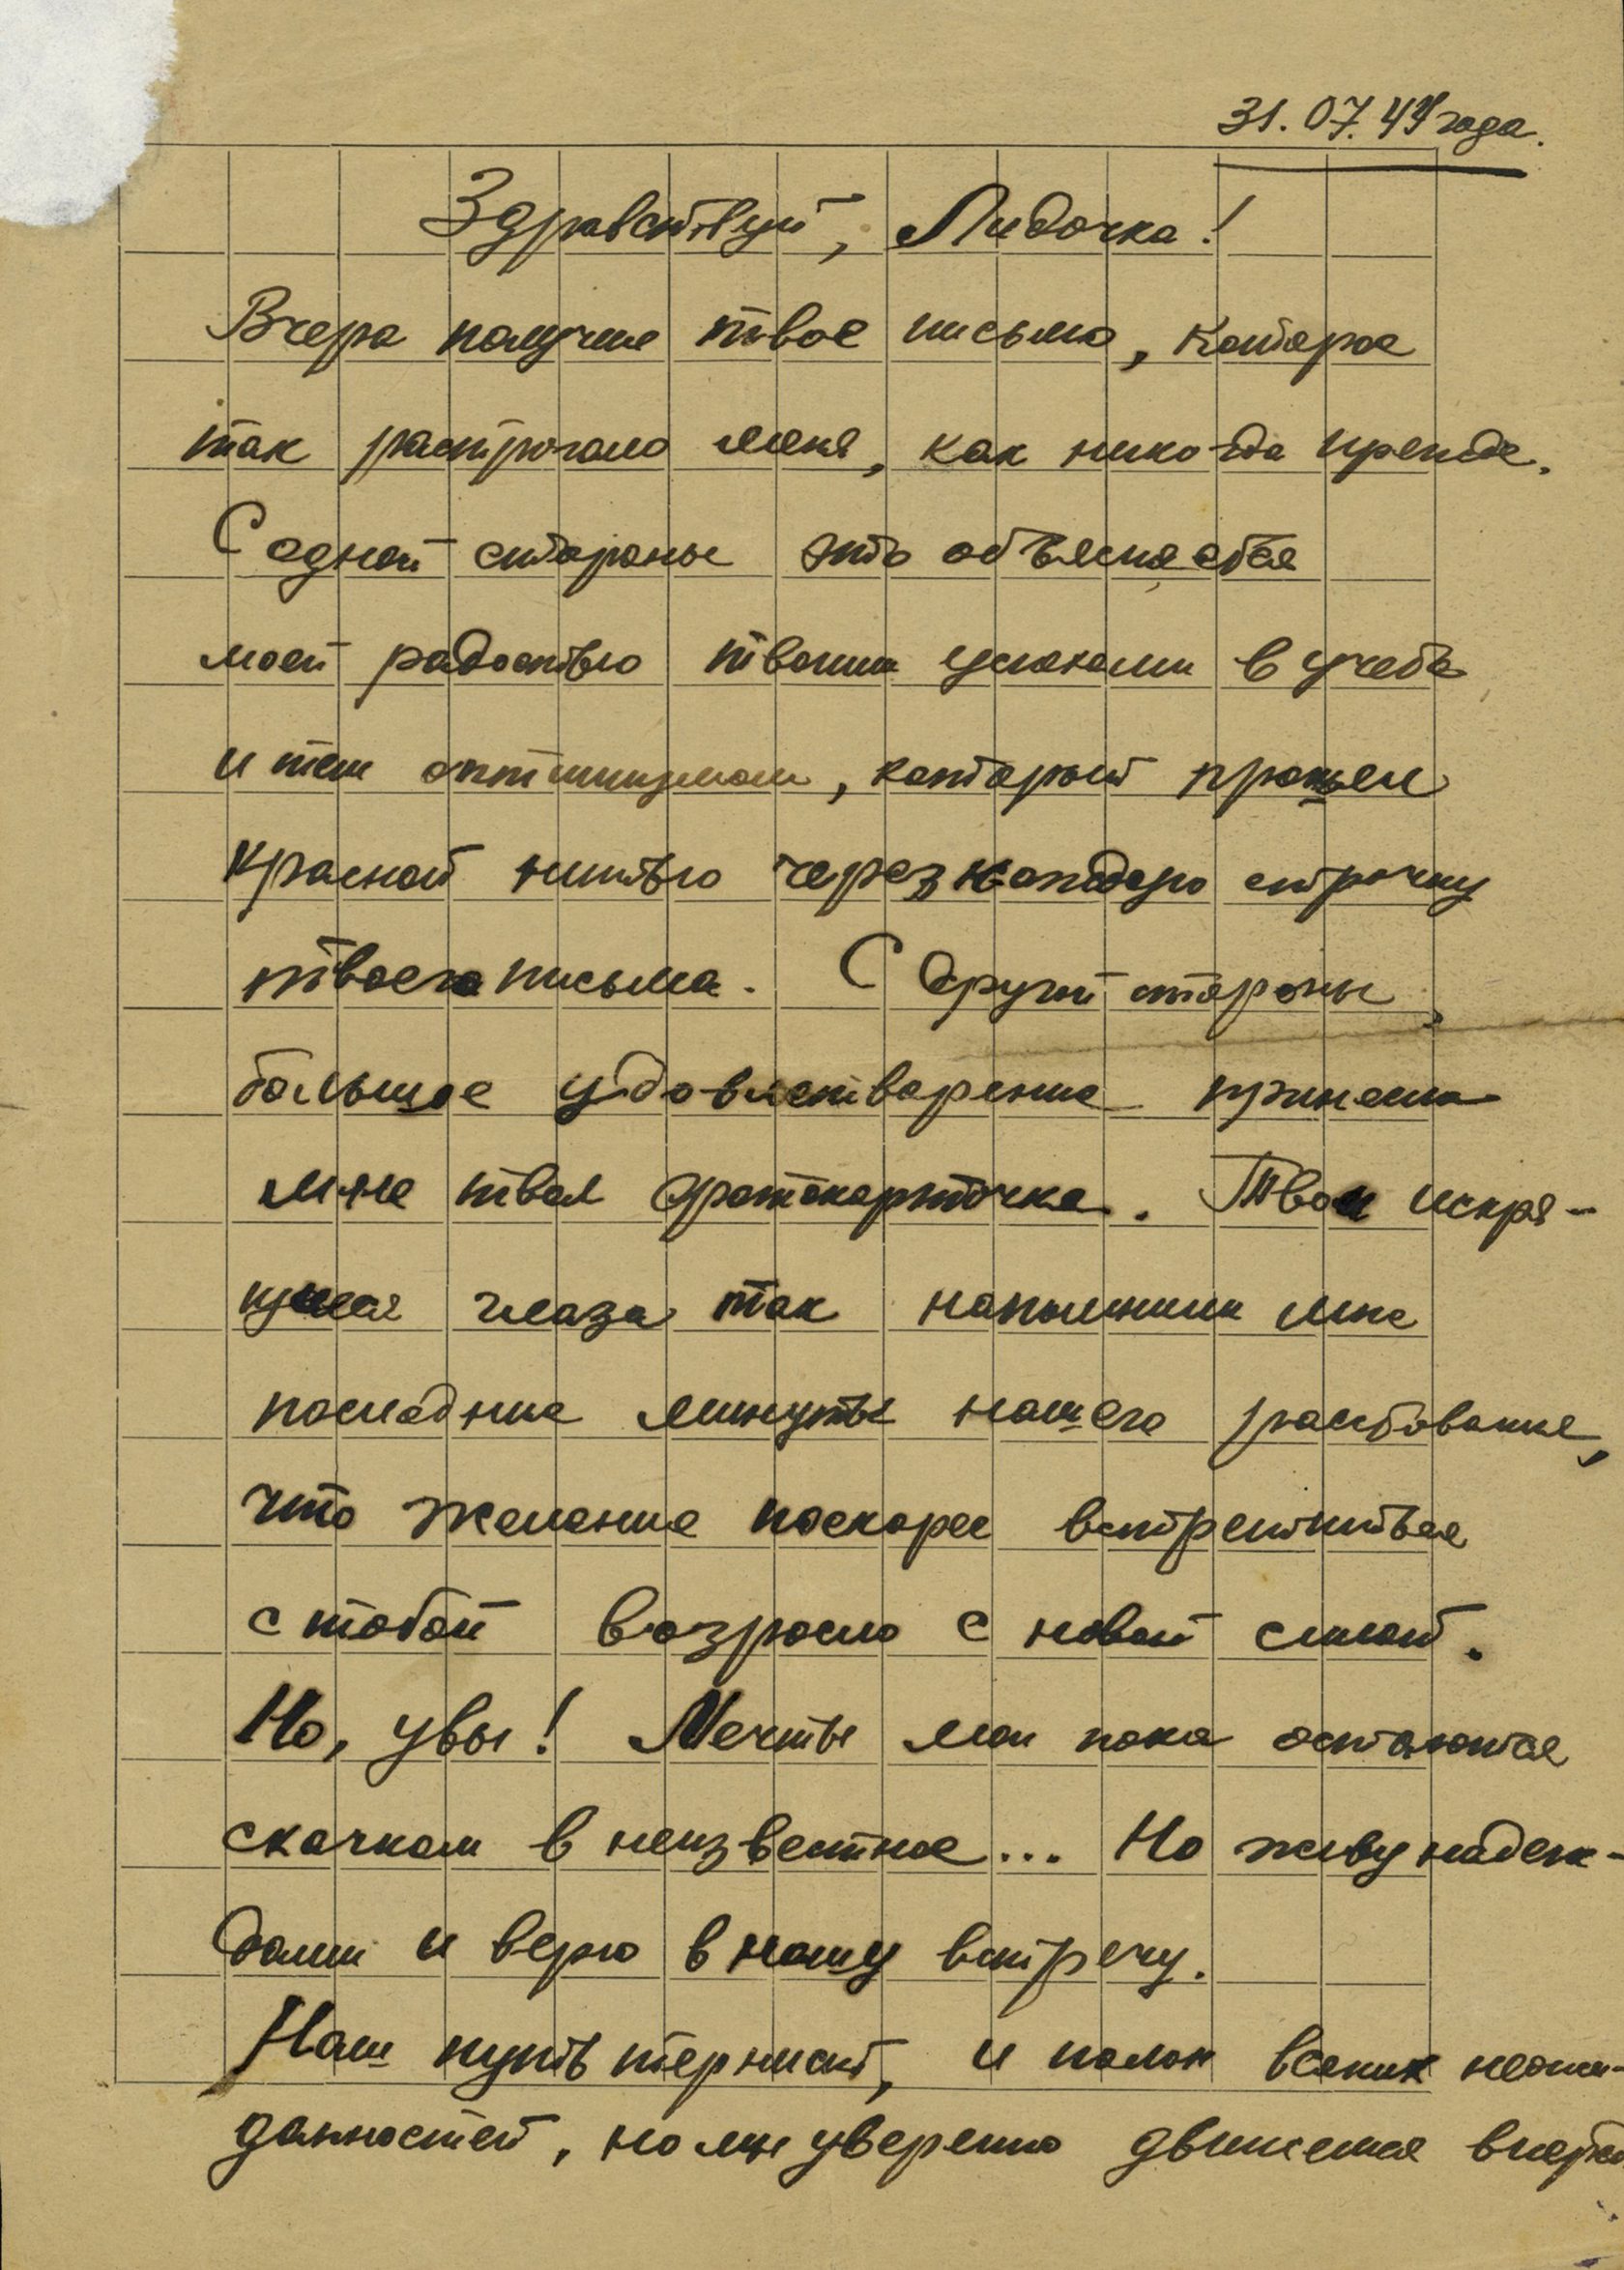 31.07.44 года.
Здравствуй, Лидочка!
Вчера получил твое письмо, которое
так растрогало меня, как никогда прежде.
С одной стороны это объясняется
моей радостью твоими успехами в учебе
и тем оптимизмом, который прошел
красной нитью через каждую строчку
твоего письма. С другой стороны,
большое удовлетворение принесла
мне твоя фотокарточка. Твои искря-
щиеся глаза так напомнили мне
последние минуты нашего расставания,
что желание поскорее встретиться
с тобой возросло с новой силой.
Но, увы! Мечты мои пока остаются
скачком в неизвестное... Но живу надеж-
дами и верю в нашу встречу.
Наш путь тернист, и полон всяких неожи-
данностей, но мы уверенно движемся